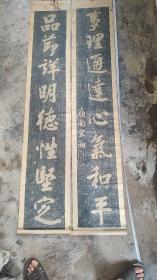 事理通達心氣和平
品節詳明德性堅定